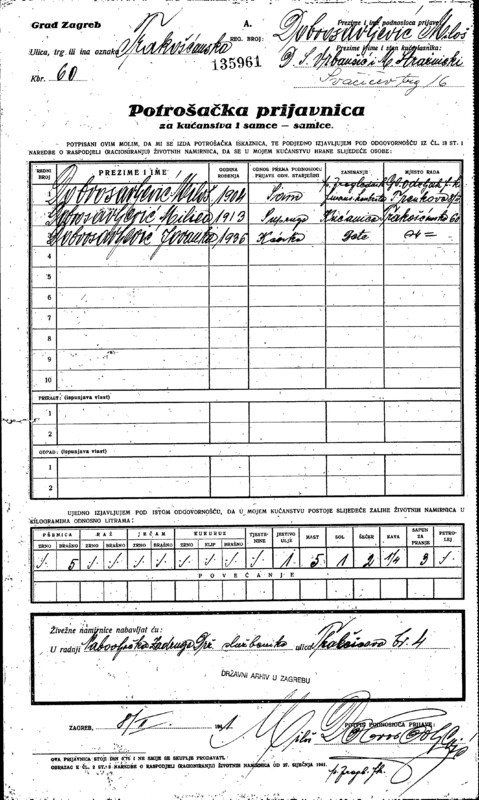 Grad Zagreb
A.
Ulica, trg. ili ina oznaka Trakošćanska
REG. BROJ: 135961
Kbr. 60
Prezime i ime podnosioca prijave:
Dobrosavljević Miloš
Prezime, ime i stan kućevlasnika:
Svačićev trg 16
Potrošačka prijavnica
za kućanstva i samce — samice.
POTPISANI OVIM MOLIM, DA MI SE IZDA POTROŠAČKA ISKAZNICA, TE PODJEDNO IZJAVLJUJEM POD ODGOVORNOŠĆU IZ ČL. 18 ST. 1
NAREDBE O RASPODJELI (RACIONIRANJU) ŽIVOTNIH NAMIRNICA, DA SE U MOJEM KUĆANSTVU HRANE SLIJEDEĆE OSOBE:
REDNI BROJ PREZIME I IME GODINA ROĐENJA ODNOS PREMA PODNOSIOCU PRIJAVE ODN. STARJEŠINI ZANIMANJE MJESTO RADA
Dobrosavljević Miloš 1904 Sam
Dobrosavljević Milica 1913 Supruga Kućanica Trakošćanska 60
Dobrosavljević Jovanka 1936 Kćerka
4
5
6
7
8
9
10
PRIRAST: (ispunjava vlast)
1
2
OTPAD: (ispunjava vlast)
1
2
UJEDNO IZJAVLJUJEM POD ISTOM ODGOVORNOŠĆU, DA U MOJEM KUĆANSTVU POSTOJE SLIJEDEĆE ZALIHE ŽIVOTNIH NAMIRNICA U
KILOGRAMIMA ODNOSNO LITRAMA:
PŠENICA RAŽ JEČAM KUKURUZ TJESTENINE JESTIVO ULJE MAST SOL ŠEĆER KAVA SAPUN ZA PRANJE PETROLEJ
ZRNO BRAŠNO ZRNO BRAŠNO ZRNO BRAŠNO ZRNO KLIP BRAŠNO
5 1 5 1 2 1/4 3
POVEĆANJE
Živežne namirnice nabavljat ću:
U radnji Nabavljačka Zadruga Drž. službenika ulica br. 4
DRŽAVNI ARHIV U ZAGREBU
ZAGREB, 194
POTPIS PODNOSIOCA PRIJAVE:
Miloš
OVA PRIJAVNICA STOJI DIN 0'75 I NE SMIJE SE SKUPLJE PRODAVATI.
OBRAZAC K ČL. 2 ST. 2 NAREDBE O RASPODJELI (RACIONIRANJU) ŽIVOTNIH NAMIRNICA OD 27. SIJEČNJA 1941.